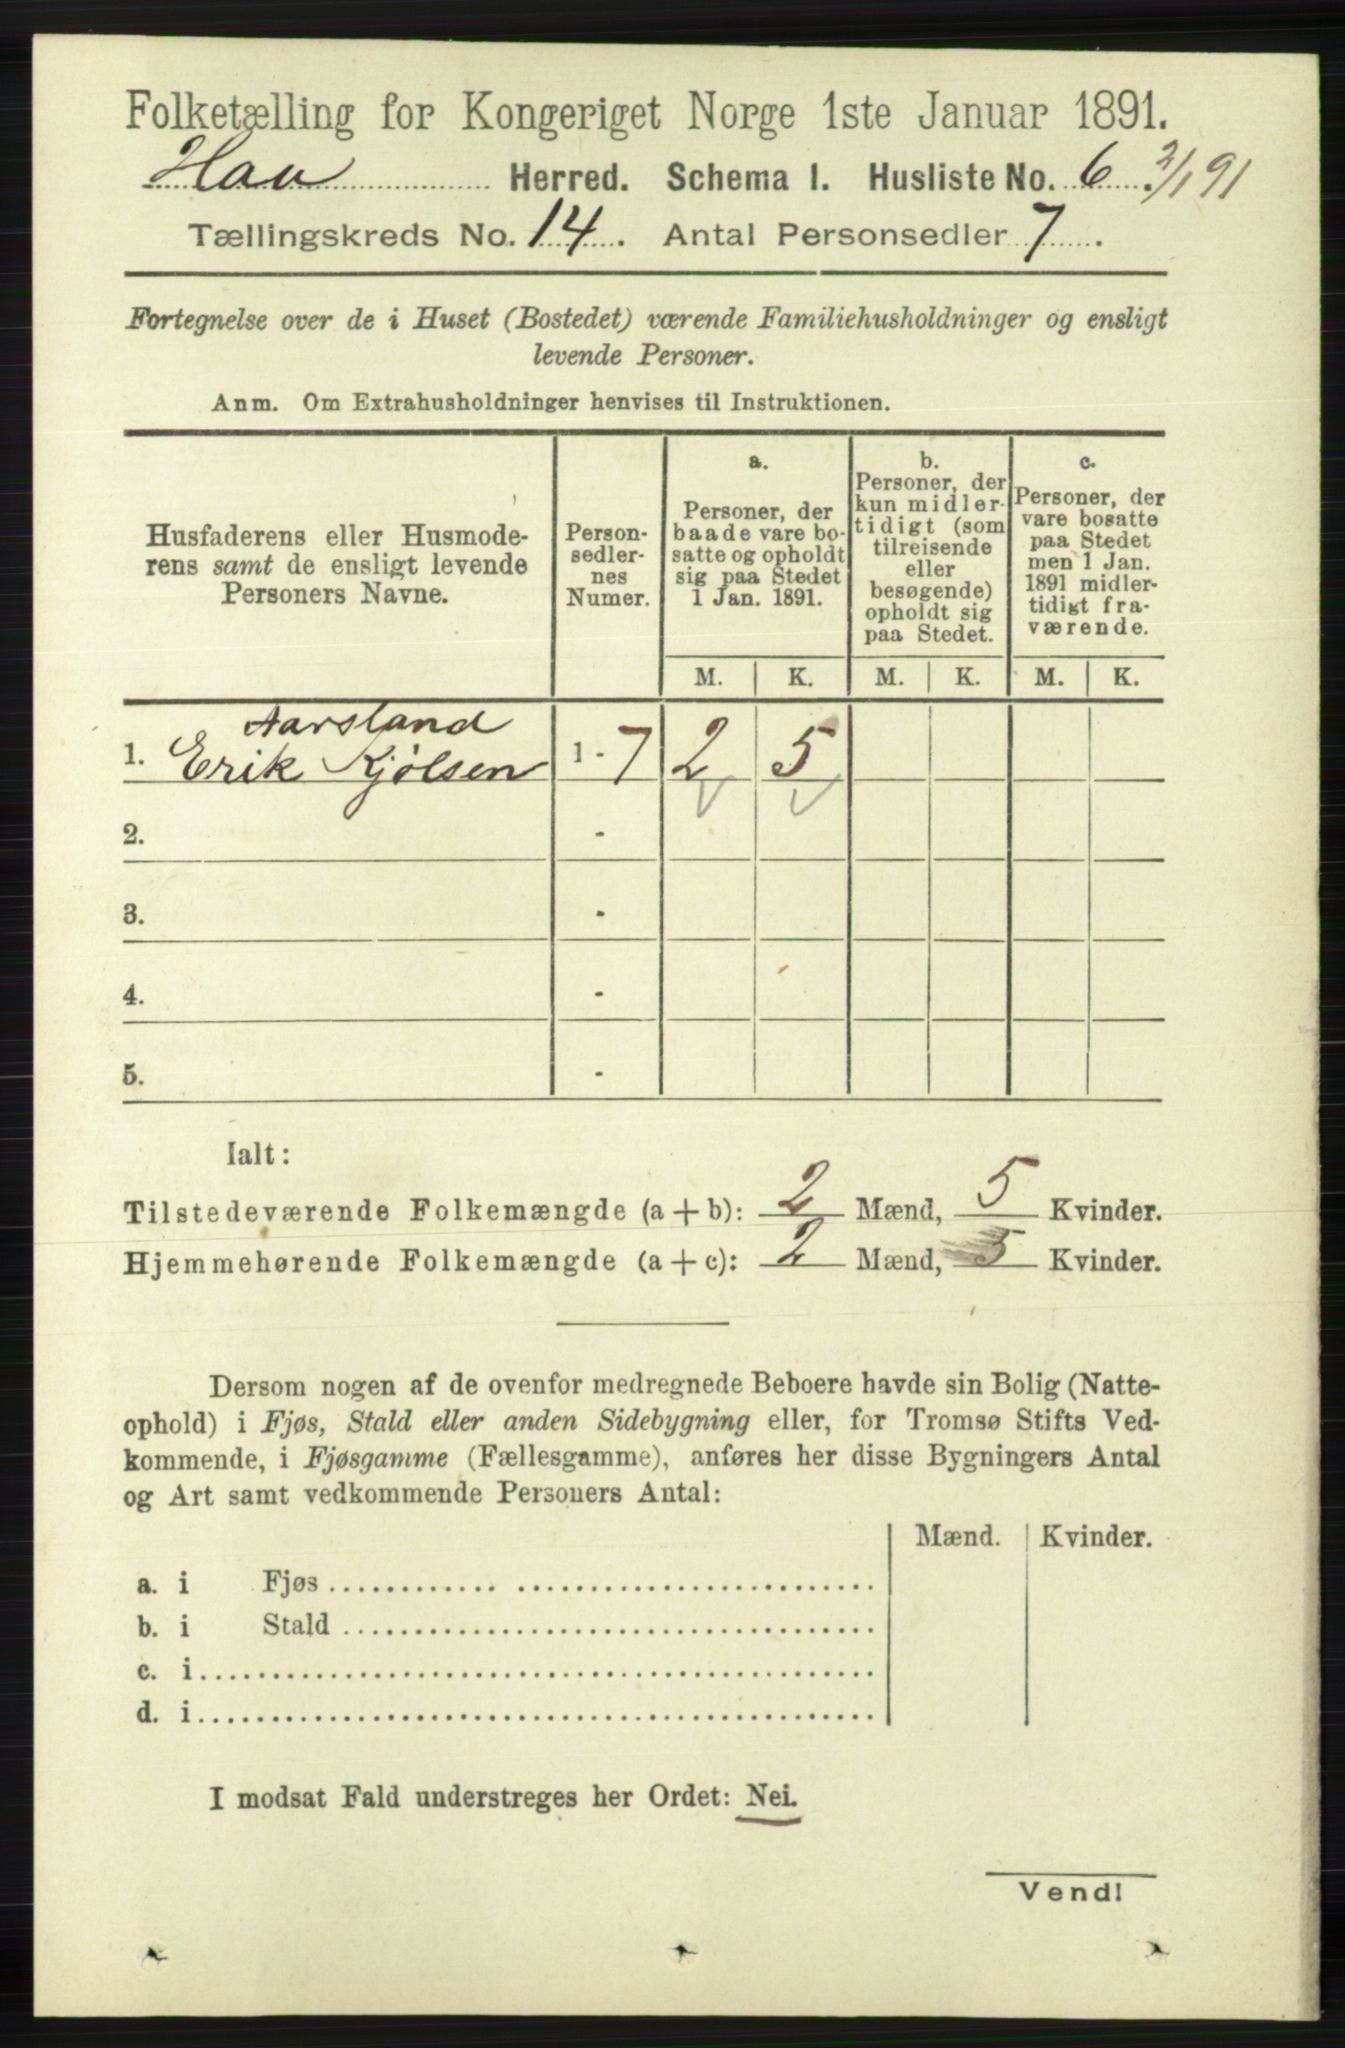 Folketælling for Kongeriget Norge 1ste Januar 1891.
Hau Herred. Schema 1. Husliste No. 6. 2/1 91
Tællingskreds No. 14. Antal Personsedler 7.
Fortegnelse over de i Huset (Bostedet) værende Familiehusholdninger og ensligt
levende Personer.
Anm. Om Extrahusholdninger henvises til Instruktionen.
Husfaderens eller Husmode-
rens samt de ensligt levende
Personers Navne.
Person-
sedler-
nes
Numer.
a.
Personer, der
baade vare bo-
satte og opholdt
sig paa Stedet
1 Jan. 1891.
b.
Personer, der
kun midler-
tidigt (som
tilreisende
eller
besøgende)
opholdt sig
paa Stedet.
c.
Personer, der
vare bosatte
paa Stedet
men 1 Jan.
1891 midler-
tidigt fra-
værende.
M. K. M. K. M. K.
Aarsland
1. Erik Kjølsen 1 - 7 2 5
2. -
3. -
4. -
5. -
Ialt:
Tilstedeværende Folkemængde (a + b): 2 Mænd, 5 Kvinder.
Hjemmehørende Folkemængde (a + c): 2 Mænd, 5 Kvinder.
Dersom nogen af de ovenfor medregnede Beboere havde sin Bolig (Natte-
ophold) i Fjøs, Stald eller anden Sidebygning eller, for Tromsø Stifts Ved-
kommende, i Fjøsgamme (Fællesgamme), anføres her disse Bygningers Antal
og Art samt vedkommende Personers Antal:
Mænd. Kvinder.
a. i Fjøs
b. i Stald
c. i
d. i
I modsat Fald understreges her Ordet: Nei.
Vend!